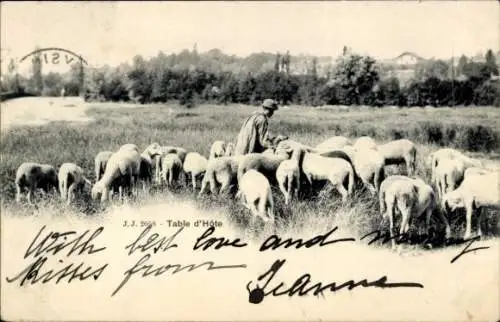 J.J. 2608 - Table d'Hôte
With best love and many
Kisses from
Jeanne